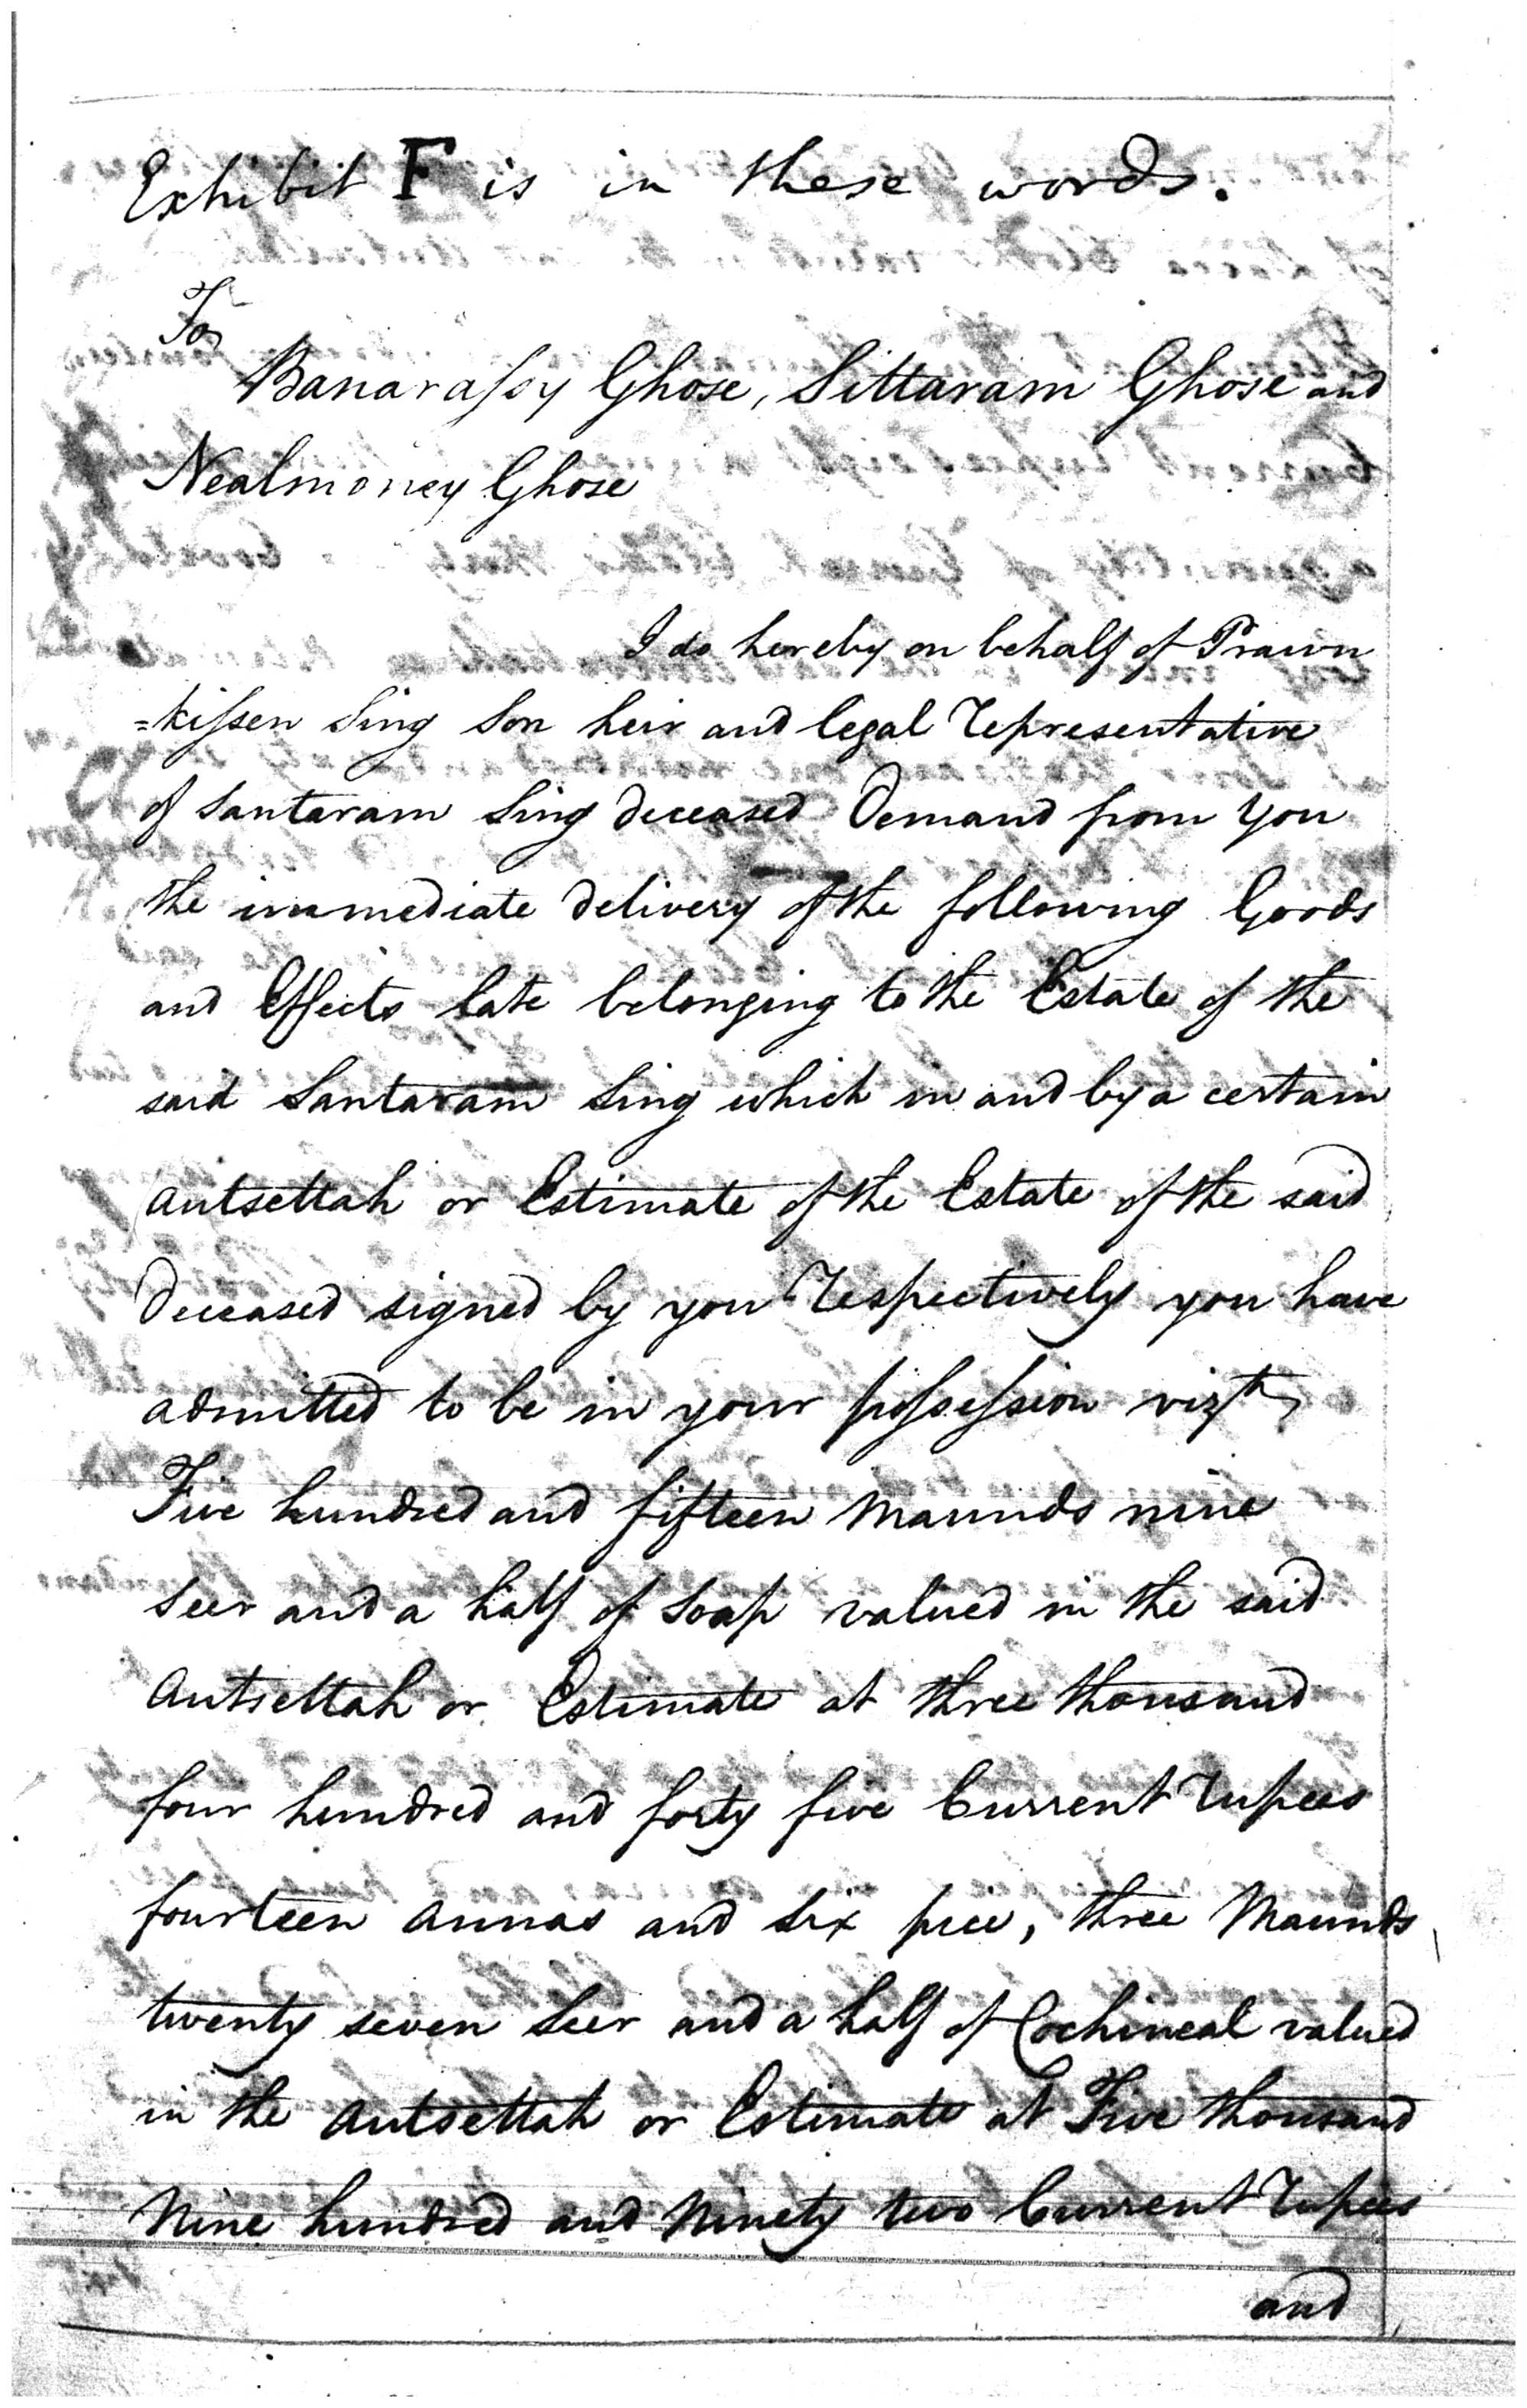 Exhibit F is in these words.
To
Banaraſsy Ghose, Sittaram Ghose and
Nealmoney Ghose
I do hereby on behalf of Prawn
=kiſsen Sing Son heir and legal representative
of Santaram Sing deceased Demand from you
the immediate delivery of the following Goods
and Effects late belonging to the Estate of the
said Santaram Sing which in and by a certain
Autsettah or Estimate of the Estate of the said
Deceased signed by you respectively you have
admitted to be in your poſseſsion vizt.
Five hundred and fifteen Maunds nine
Seer and a half of Soap valued in the said
Autsettah or Estimate at three thousand
four hundred and forty five Current rupees
fourteen annas and six pice, three Maunds
twenty seven Seer and a half of Cochineal valued
in the Autsettah or Estimate at Five thousand
Nine hundred and Ninety two Current rupees
and